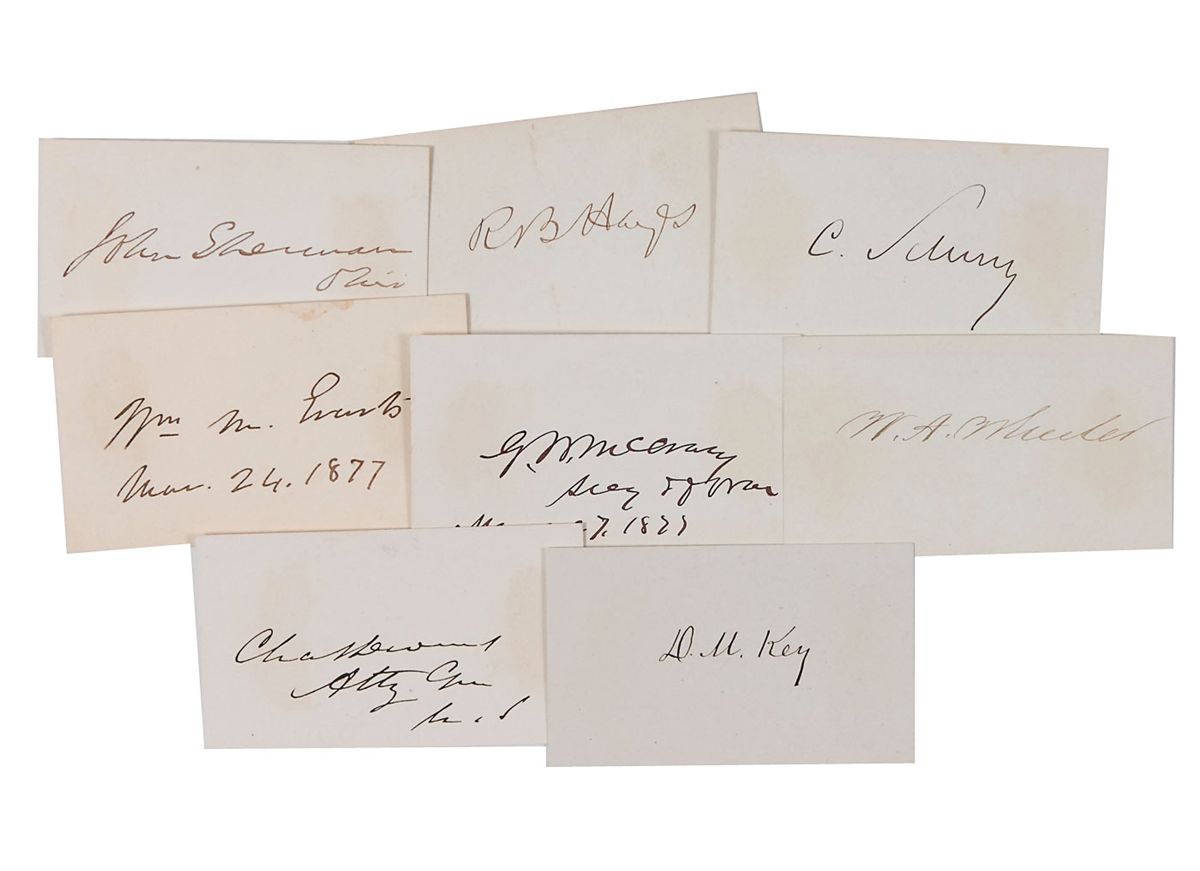 John Sherman
Ohio
R B Hayes
C. Schurz
Wm M. Evarts
Mar. 24. 1877
G. W. McCrary
Secy of War
7, 1877
W. A. Wheeler
Chas Devens
Atty Gen
U. S
D. M. Key